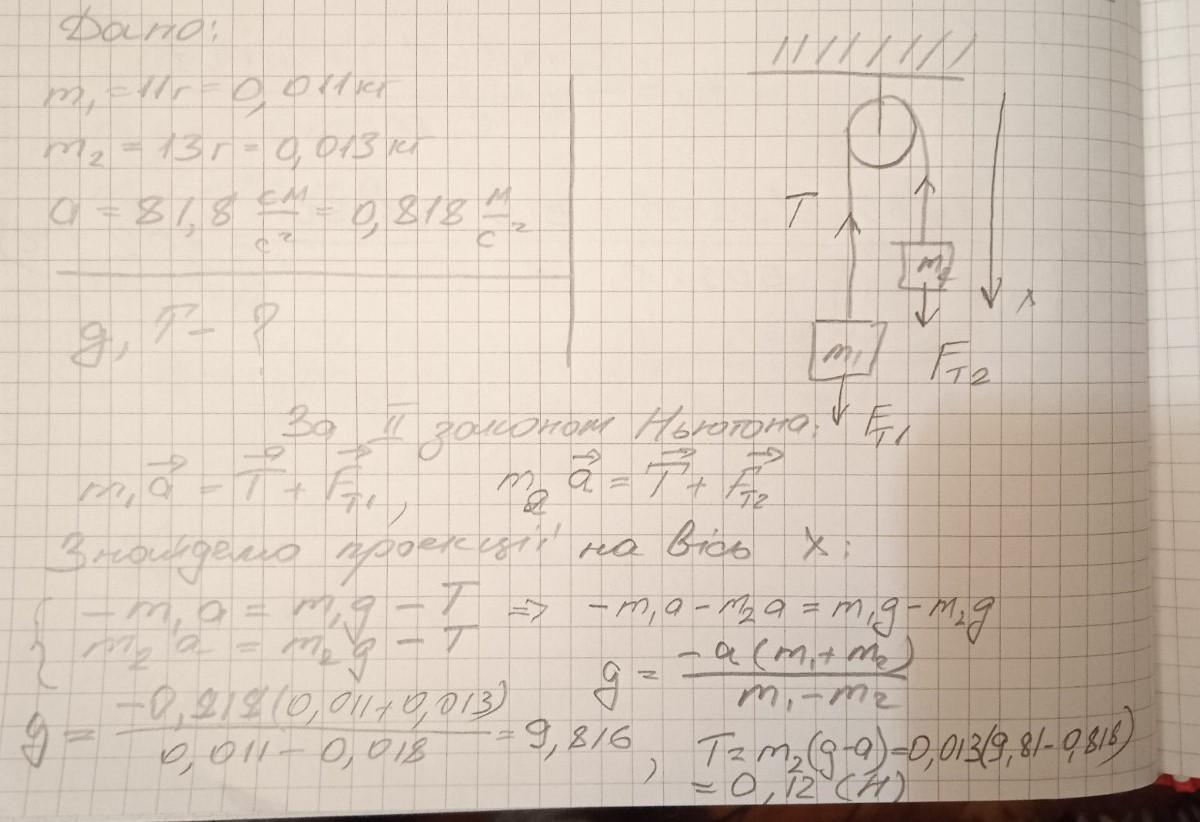 Дано:
m₁ = 11г = 0,011кг
m₂ = 13г = 0,013кг
a = 81,8 см/с² = 0,818 м/с²
g, T - ?
T
m₁
m₂
F_T1
F_T2
x
За II законом Ньютона:
m₁a⃗ = T⃗ + F⃗_T1, m₂a⃗ = T⃗ + F⃗_T2
Знайдемо проекції на вісь x:
{ -m₁a = m₁g - T => -m₁a - m₂a = m₁g - m₂g
m₂a = m₂g - T
g = -a(m₁+m₂) / m₁-m₂
g = -0,818(0,011+0,013) / 0,011-0,018 = 9,816, T = m₂(g-a) = 0,013(9,81-0,818)
= 0,12 (Н)